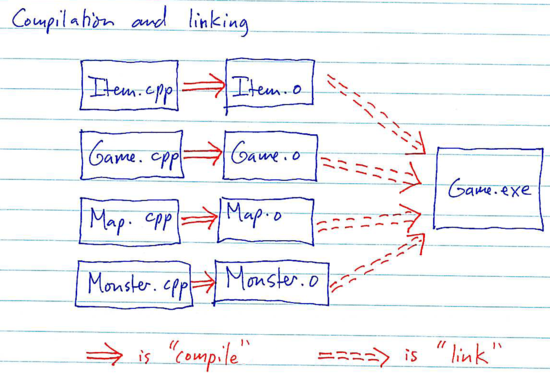 Compilation and linking
Item.cpp Item.o
Game.cpp Game.o
Game.exe
Map.cpp Map.o
Monster.cpp Monster.o
is "compile" is "link"